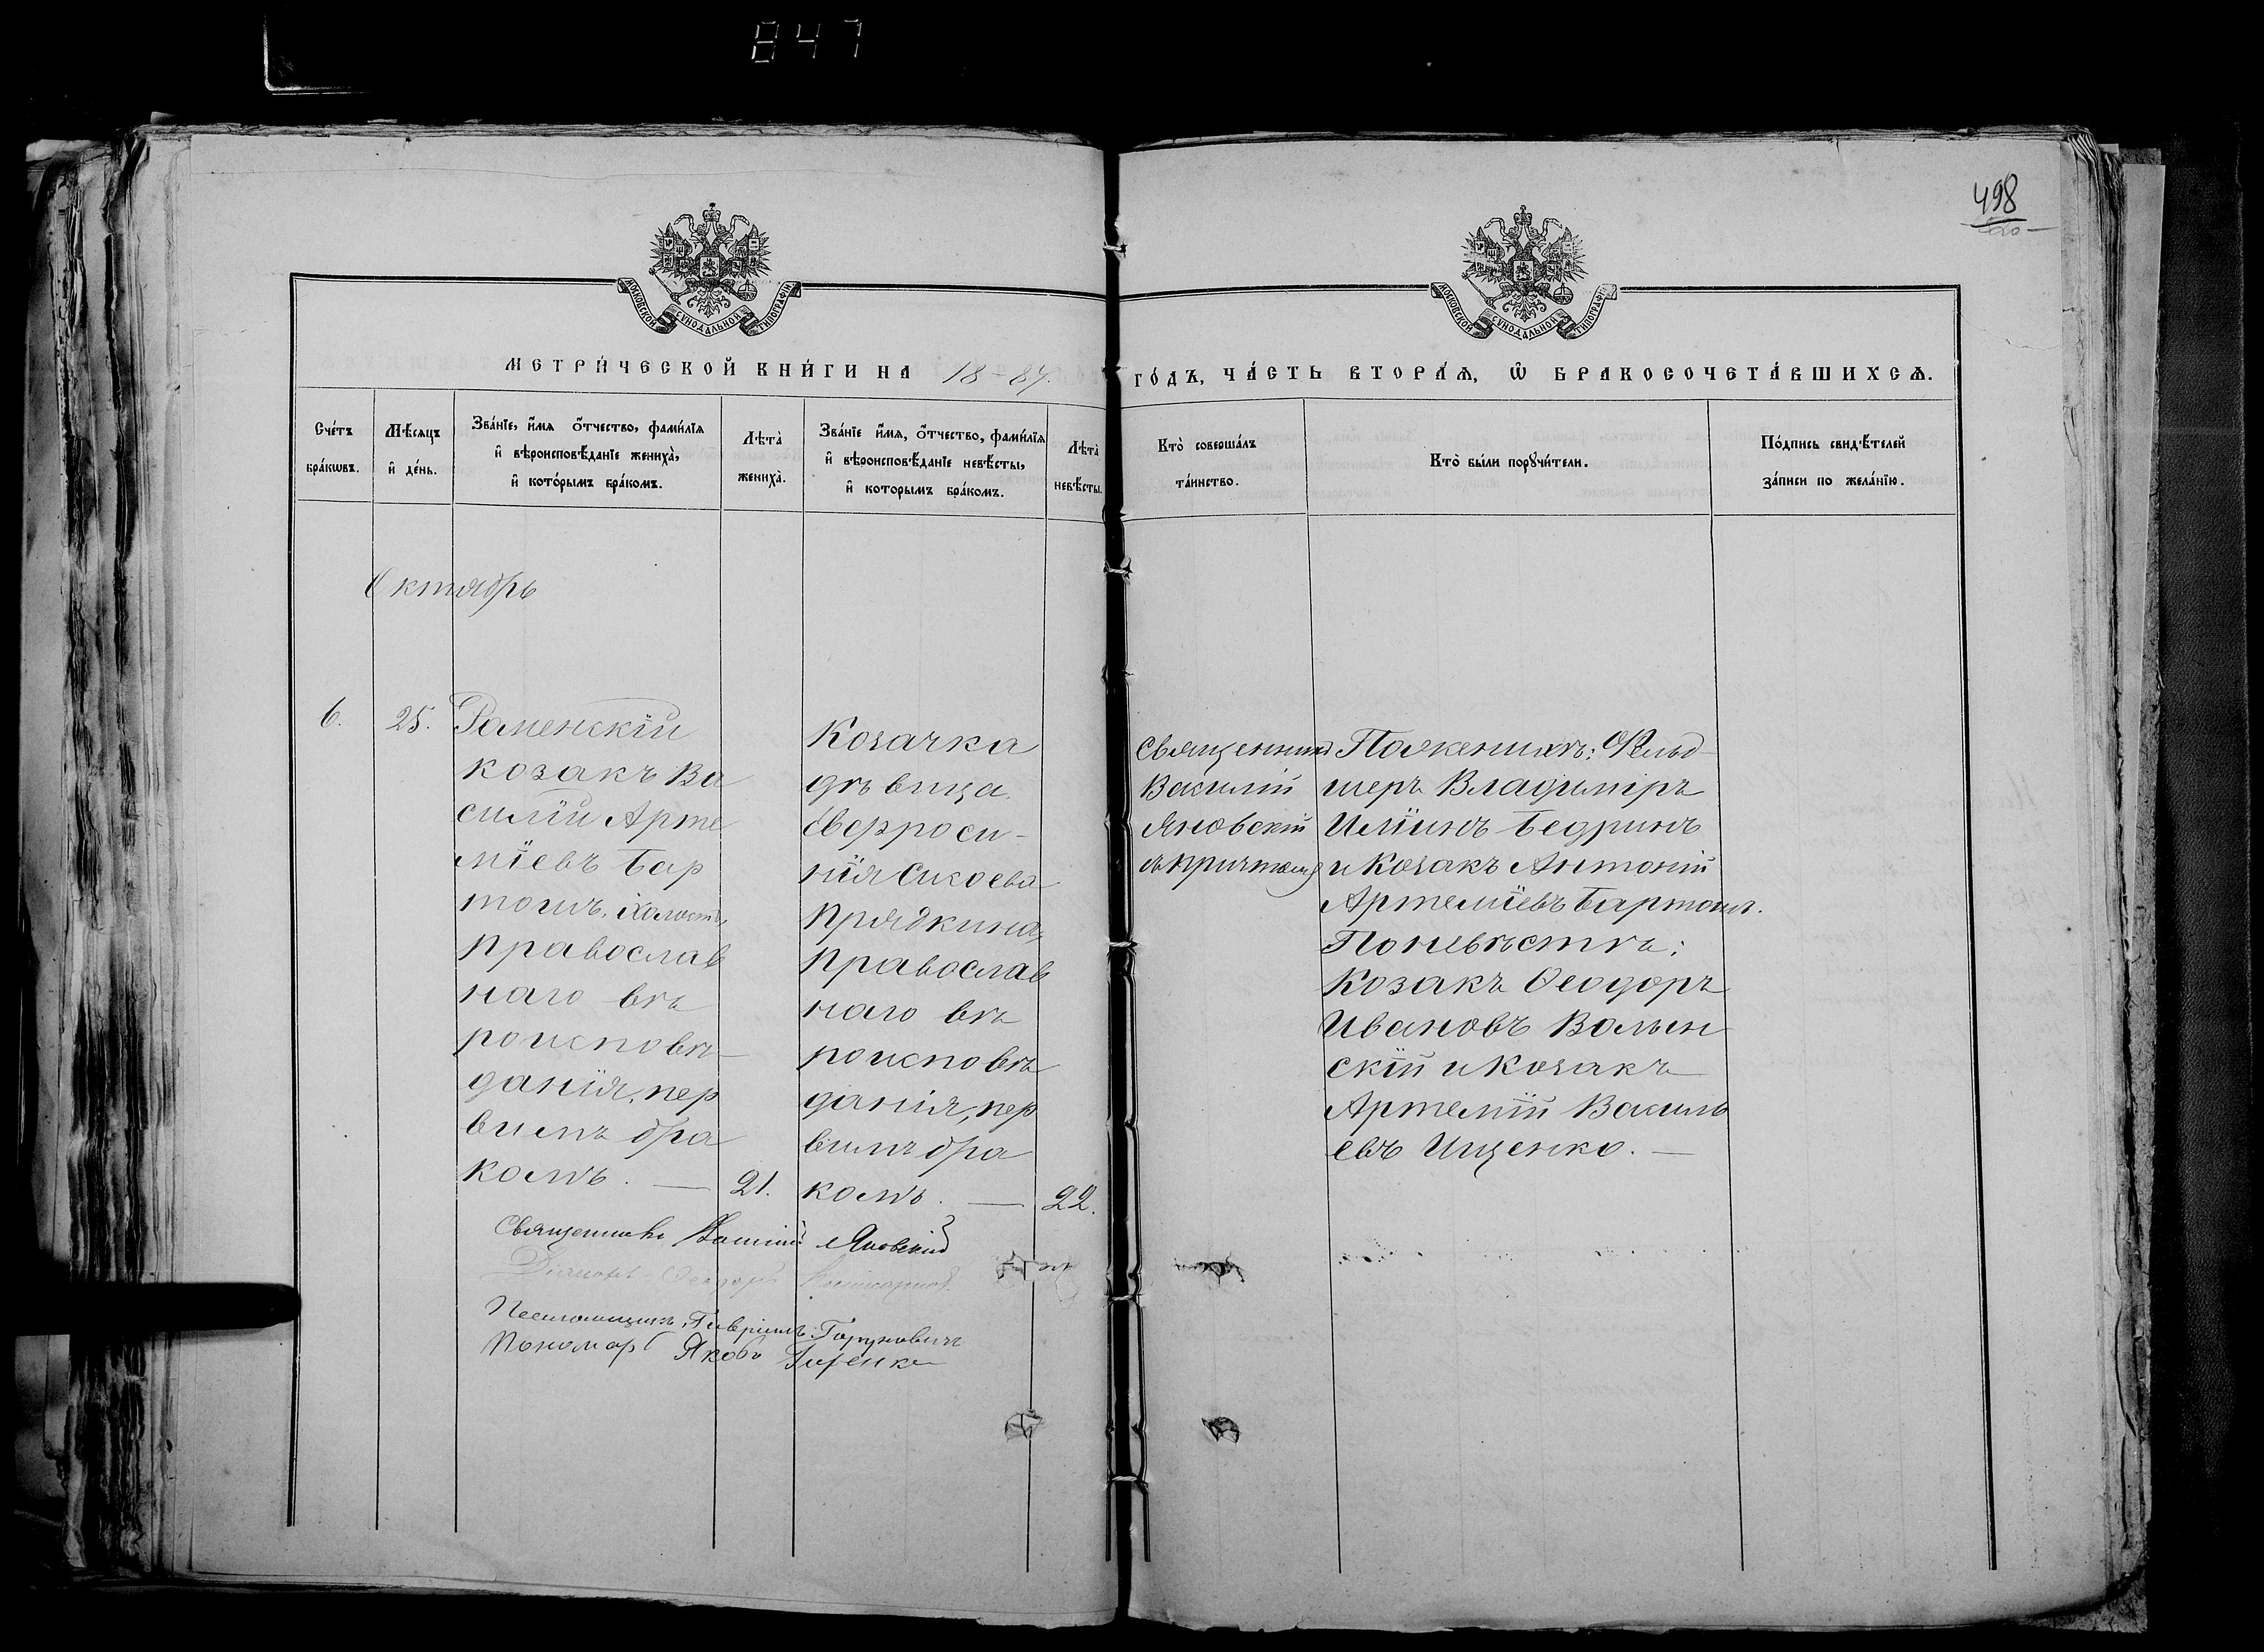 847
498
МОСКОВСКОЙ СУНОДАЛЬНОЙ ТИПОГРАФІИ
МОСКОВСКОЙ СУНОДАЛЬНОЙ ТИПОГРАФІИ
МЕТРИ́ЧЕСКОЙ КНИ́ГИ НА 18-87.
ГО́ДЪ, ЧА́СТЬ ВТОРА́Я, Ѡ БРАКОСОЧЕТА́ВШИХСЯ.
Сче́тъ
бра́кѡвъ.
Мѣ́сяцъ
и҆ де́нь.
Зва́нїе, и҆́мя о҆́тчество, фами́лїя
и҆ вѣроисповѣ́данїе жениха̀,
и҆ кото́рымъ бра́комъ.
Лѣта̀
жениха̀.
Зва́нїе и҆́мя, о҆́тчество, фами́лїя
и҆ вѣроисповѣ́данїе невѣ́сты,
и҆ которымъ бра́комъ.
Лѣта̀
невѣ́сты.
Кто̀ соверша́лъ
та́инство.
Кто̀ бы́ли порꙋчи́тели.
По́дпись свидѣ́телей
за́писи по жела́нїю.
Октябрь
6.
25.
Роменскій
козакъ Ва
силій Арте
міевъ Бар
тошъ, холостъ,
православ
наго вѣ
роисповѣ-
данія, пер
вимъ бра
комъ. —
21.
Козачка
дѣвица
Евфроси-
нія Сисоева
Прядкина,
православ
наго вѣ
роисповѣ
данія, пер
вимъ бра
комъ. —
22.
Священникъ
Василій
Яновскій
съ причтомъ
По женихѣ: Фельд-
шеръ Владиміръ
Иліинъ Бедринъ
и Козакъ Антоній
Артеміевъ Бартошъ.
По невѣстѣ:
Козакъ Ѳеодоръ
Ивановъ Волын
скій и Козакъ
Артемій Василь
евъ Ищенко. —
Священникъ Василій Яновскій
Діаконъ Ѳеодоръ
Псаломщикъ Гавріилъ
Пономарь Яковъ